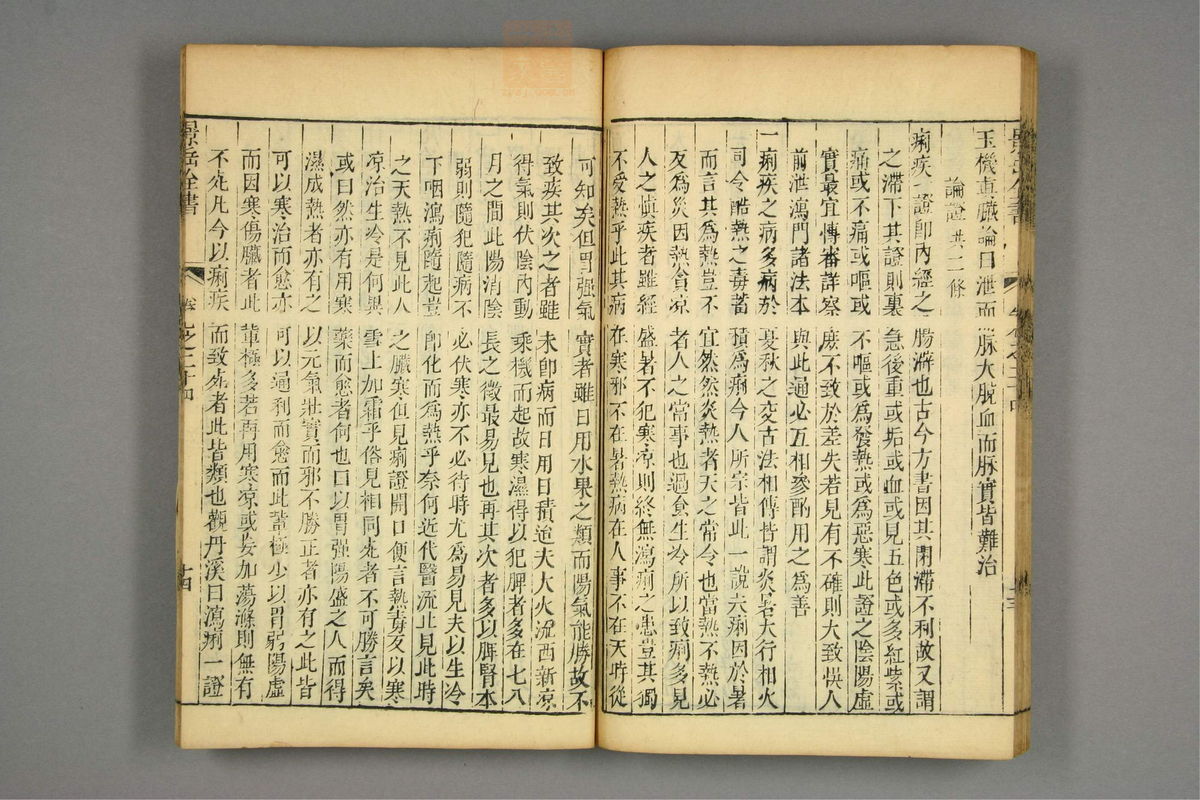 玉機眞臟論曰泄而脉大脫血而脉實皆難治
論證 共二條
痢疾一證卽內經之腸澼也古今方書因其閉滯不利故又謂
之滯下其證則裏急後重或垢或血或見五色或多紅紫或
痛或不痛或嘔或不嘔或爲發熱或爲惡寒此證之陰陽虛
實最宜博審詳察庶不致於差失若見有不確則大致悞人
前泄瀉門諸法本與此通必互相參酌用之爲善
一痢疾之病多病於夏秋之交古法相傳皆謂炎暑大行相火
司令酷熱之毒蓄積爲痢今人所宗皆此一說夫痢因於暑
而言其爲熱豈不宜然然炎熱者天之常令也當熱不熱必
反爲災因熱貪凉者人之常事也過食生冷所以致痢多見
人之愼疾者雖經盛暑不犯寒凉則終無瀉痢之患豈其獨
不受熱乎此其病在寒邪不在暑熱病在人事不在天時從
可知矣但胃强氣實者雖日用水果之類而陽氣能勝故不
致疾其次之者雖未卽病而日用日積迨夫大火流西新凉
得氣則伏陰內動乘機而起故寒濕得以犯脾者多在七八
月之間此陽消陰長之徵最易見也再其次者多以脾腎本
弱則隨犯隨病不必伏寒亦不必待時尤爲易見夫以生冷
下咽瀉痢隨起豈卽化而爲熱乎奈何近代醫流止見此時
之天熱不見此人之臟寒但見痢證開口便言熱毒反以寒
凉治生冷是何異雪上加霜乎俗見相同死者不可勝言矣
或曰然亦有用寒藥而愈者何也曰以胃强陽盛之人而得
濕成熱者亦有之以元氣壯實而邪不勝正者亦有之此皆
可以寒治而愈亦可以通利而愈而此輩極少以胃弱陽虛
而因寒傷臟者此輩極多若再用寒凉或妄加蕩滌則無有
不死凡今以痢疾而致死者此皆類也觀丹溪曰瀉痢一證
景岳全書
卷之二十四
十四